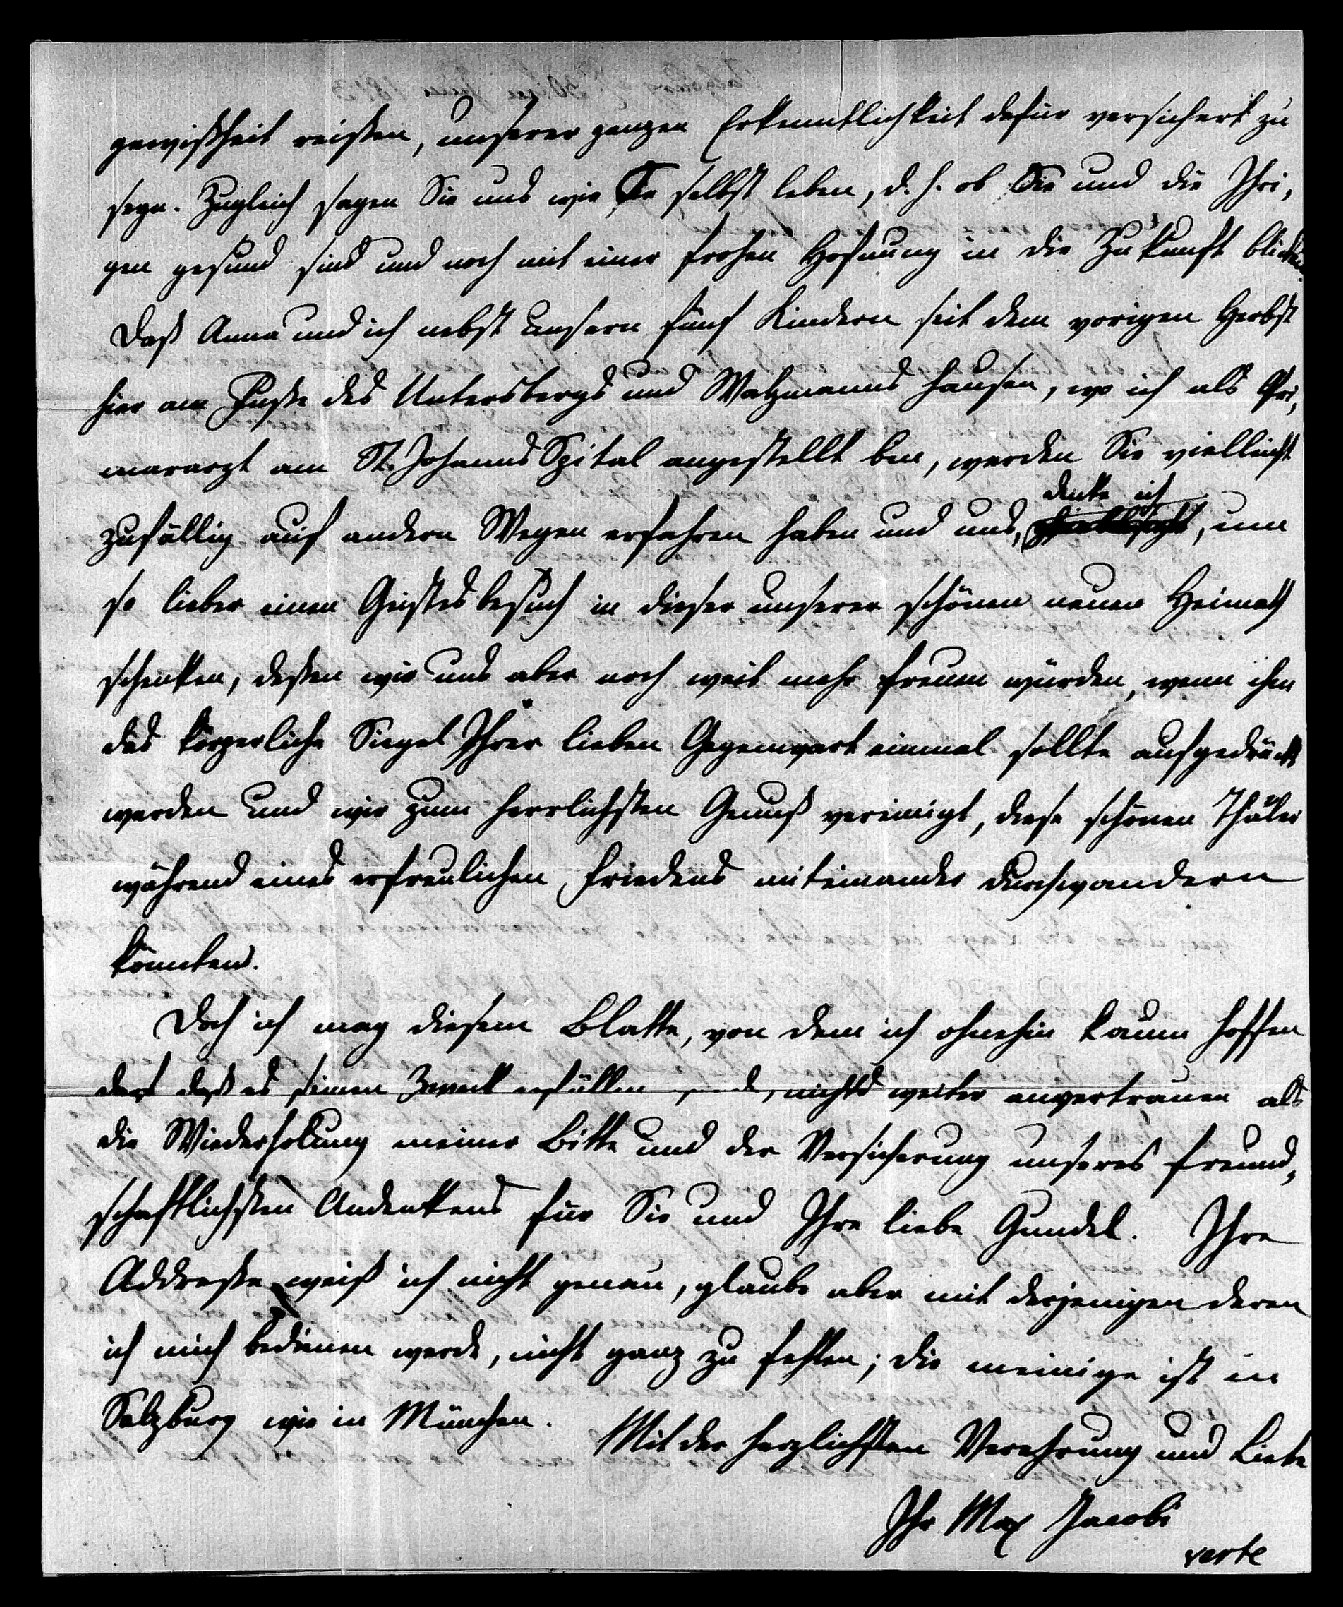 gewißheit reißen, unserer ganzen Erkenntlichkeit dafür versichert zu
seyn. Zugleich sagen Sie uns wie Sie selbst leben, d. h. ob Sie und die Ihri,
gen gesund sind und noch mit einer frohen Hofnung in die Zukunft blicken.
Daß Anna und ich nebst unsern fünf Kindern seit dem vorigen Herbst
hier am Fuße des Untersbergs und Watzmanns hausen, wo ich als Pri,
mararzt am St. Johanns Spital angestellt bin, werden Sie vielleicht
zufällig auf andern Wegen erfahren haben und uns, denke ich, um
so lieber einen Geistesbesuch in dieser unserer schönen neuen Heimath
schenken, deßen wir uns aber noch weit mehr freuen würden, wenn ihm
das körperliche Siegel Ihrer lieben Gegenwart einmal sollte aufgedrückt
werden und wir zum herrlichsten Genuß vereinigt, diese schönen Thäler
während eines erfreulichen Friedens miteinander durchwandern
könnten.
Doch ich mag diesem Blatte, von dem ich ohnehin kaum hoffen
darf daß es seinen Zweck erfüllen nichts weiter anvertrauen als
die Wiederholung meiner Bitte und der Versicherung unseres freund,
schaftlichsten Andenkens für Sie und Ihre liebe Gundel. Ihre
Addreße weiß ich nicht genau, glaube aber mit derjenigen deren
ich mich bedienen werde, nicht ganz zu fehlen; die meinige ist in
Salzburg wie in München.
Mit der herzlichsten Verehrung und Liebe
Ihr Max Jacobi
verte